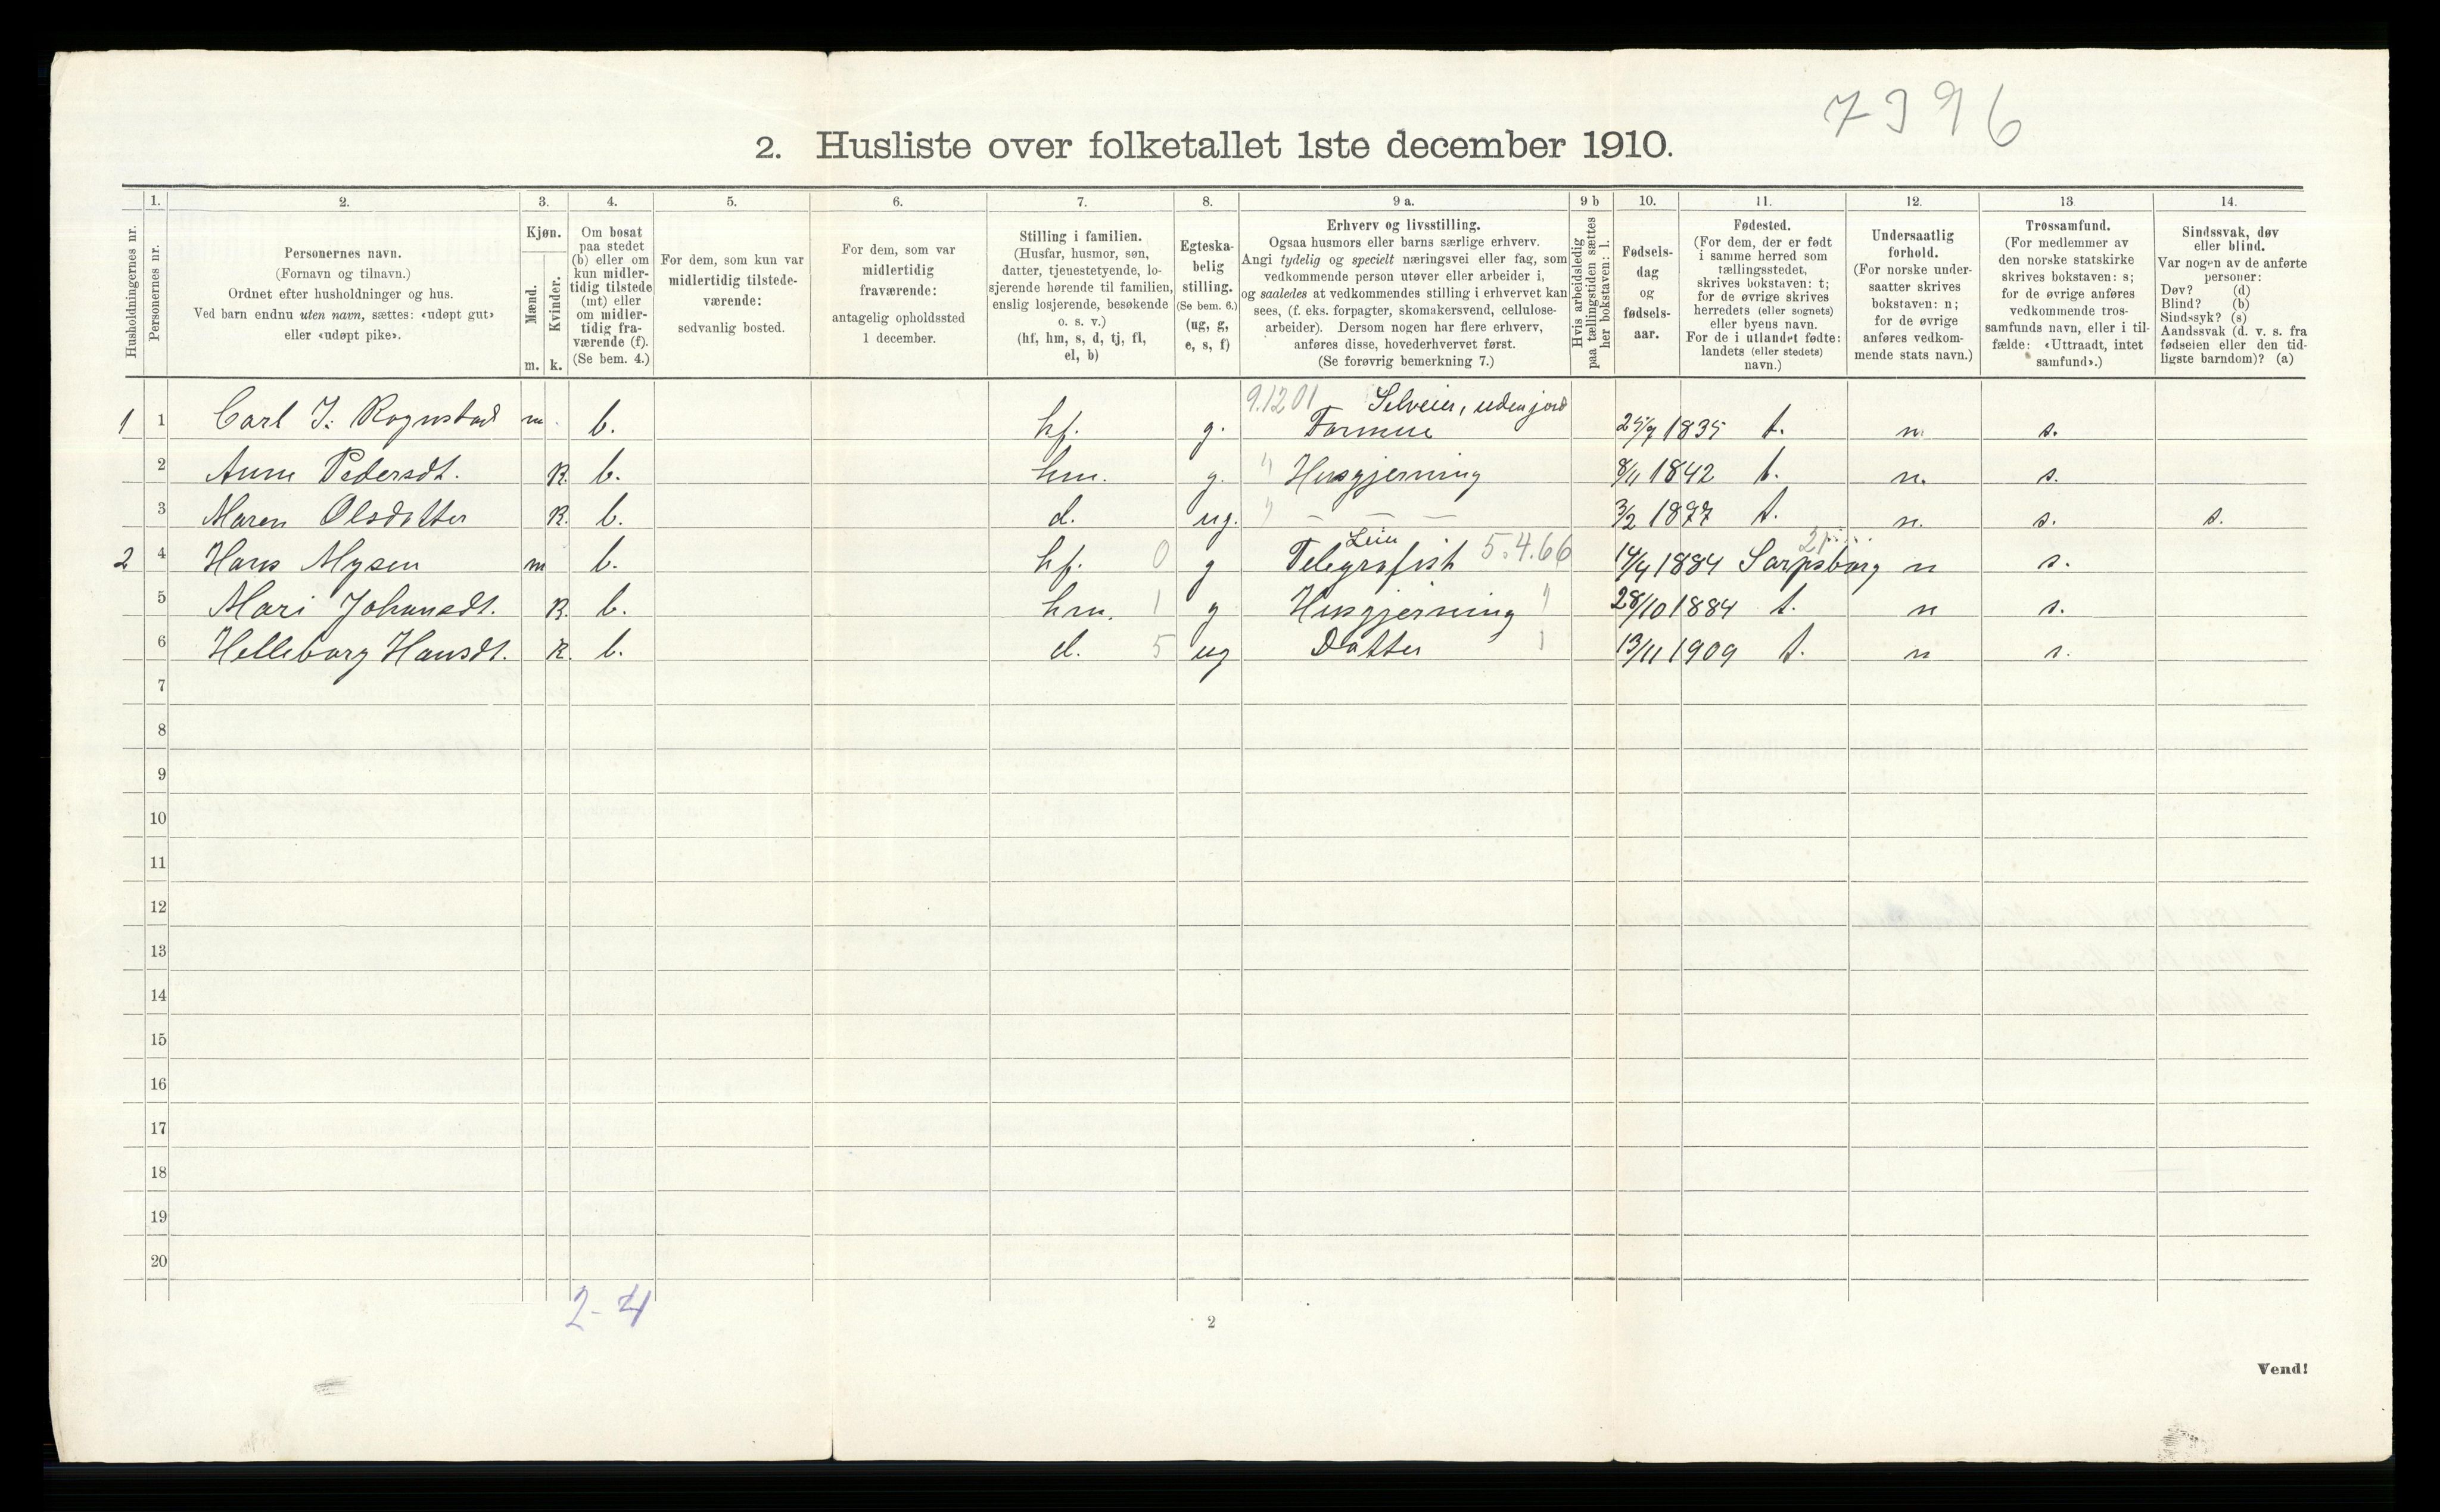 7396
2. Husliste over folketallet 1ste december 1910.
Husholdningernes nr.
1.
Personernes nr.
2.
Personernes navn.
(Fornavn og tilnavn.)
Ordnet efter husholdninger og hus.
Ved barn endnu uten navn, sættes: «udøpt gut»
eller «udøpt pike».
3.
Kjøn.
Mænd.
Kvinder.
m. k.
4.
Om bosat
paa stedet
(b) eller om
kun midler-
tidig tilstede
(mt) eller
om midler-
tidig fra-
værende (f).
(Se bem. 4.)
5.
For dem, som kun var
midlertidig tilstede-
værende:
sedvanlig bosted.
6.
For dem, som var
midlertidig
fraværende:
antagelig opholdssted
1 december.
7.
Stilling i familien.
(Husfar, husmor, søn,
datter, tjenestetyende, lo-
sjerende hørende til familien,
enslig losjerende, besøkende
o. s. v.)
(hf, hm, s, d, tj, fl,
el, b)
8.
Egteska-
belig
stilling.
(Se bem. 6.)
(ug, g,
e, s, f)
9 a.
Erhverv og livsstilling.
Ogsaa husmors eller barns særlige erhverv.
Angi tydelig og specielt næringsvei eller fag, som
vedkommende person utøver eller arbeider i,
og saaledes at vedkommendes stilling i erhvervet kan
sees, (f. eks. forpagter, skomakersvend, cellulose-
arbeider). Dersom nogen har flere erhverv,
anføres disse, hovederhvervet først.
(Se forøvrig bemerkning 7.)
9 b
Hvis arbeidsledig
paa tællingstiden sættes
her bokstaven: l.
10.
Fødsels-
dag
og
fødsels-
aar.
11.
Fødested.
(For dem, der er født
i samme herred som
tællingsstedet,
skrives bokstaven: t;
for de øvrige skrives
herredets (eller sognets)
eller byens navn.
For de i utlandet fødte:
landets (eller stedets)
navn.)
12.
Undersaatlig
forhold.
(For norske under-
saatter skrives
bokstaven: n;
for de øvrige
anføres vedkom-
mende stats navn.)
13
Trossamfund.
(For medlemmer av
den norske statskirke
skrives bokstaven: s;
for de øvrige anføres
vedkommende tros-
samfunds navn, eller i til-
fælde: «Uttraadt, intet
samfund».)
14.
Sindssvak, døv
eller blind.
Var nogen av de anførte
personer:
Døv? (d)
Blind? (b)
Sindssyk? (s)
Aandssvak (d. v. s. fra
fødselen eller den tid-
ligste barndom)? (a)
9.12 01 Selveier, uden jord
1 1 Carl J. Rognstad m b. hf. g. Formue 25/9 1835 t. n. s.
2 Anne Pedersdt. K. b. hm. g. " Husgjerning 8/11 1842 t. n. s.
3 Maren Olsdatter K. b. d. ug. " — — — 3/2 1877 t. n. s. s.
Leier 21
2 4 Hans Mysen m b. hf. 0 g Telegrafist 5.4.66 14/4 1884 Sarpsborg n s.
5 Mari Johansdt. K. b. hm. 1 g Husgjerning " 28/10 1884 t. n s.
6 Helleborg Hansdt. K. b. d. 5 ug Datter " 13/11 1909 t. n s.
7
8
9
10
11
12
13
14
15
16
17
18
19
20
2-4
2
Vend!